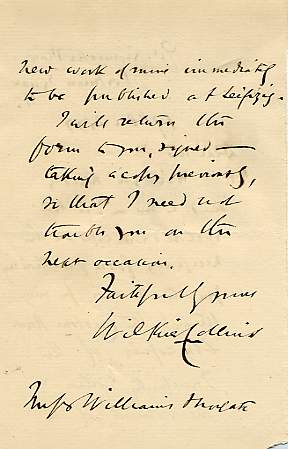 new work of mine immediately
to be published at Leipzig.
I will return the
form to you, signed —
taking a copy previously,
so that I need not
trouble you on the
next occasion.
Faithfully yours
Wilkie Collins
Messrs Williams & Norgate